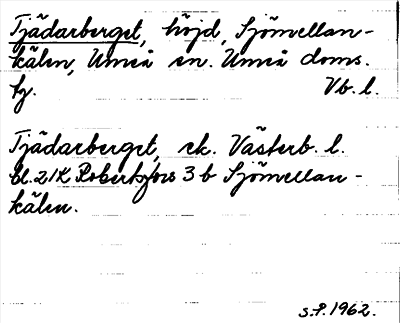 Tjädarberget, höjd, Sjömellan-
kälen, Umeå sn. Umeå doms.
fg. Vb. l.
Tjädarberget, ek. Västerb. l.
bl. 21K Robertsfors 3 b Sjömellan-
kälen.
S.P. 1962.